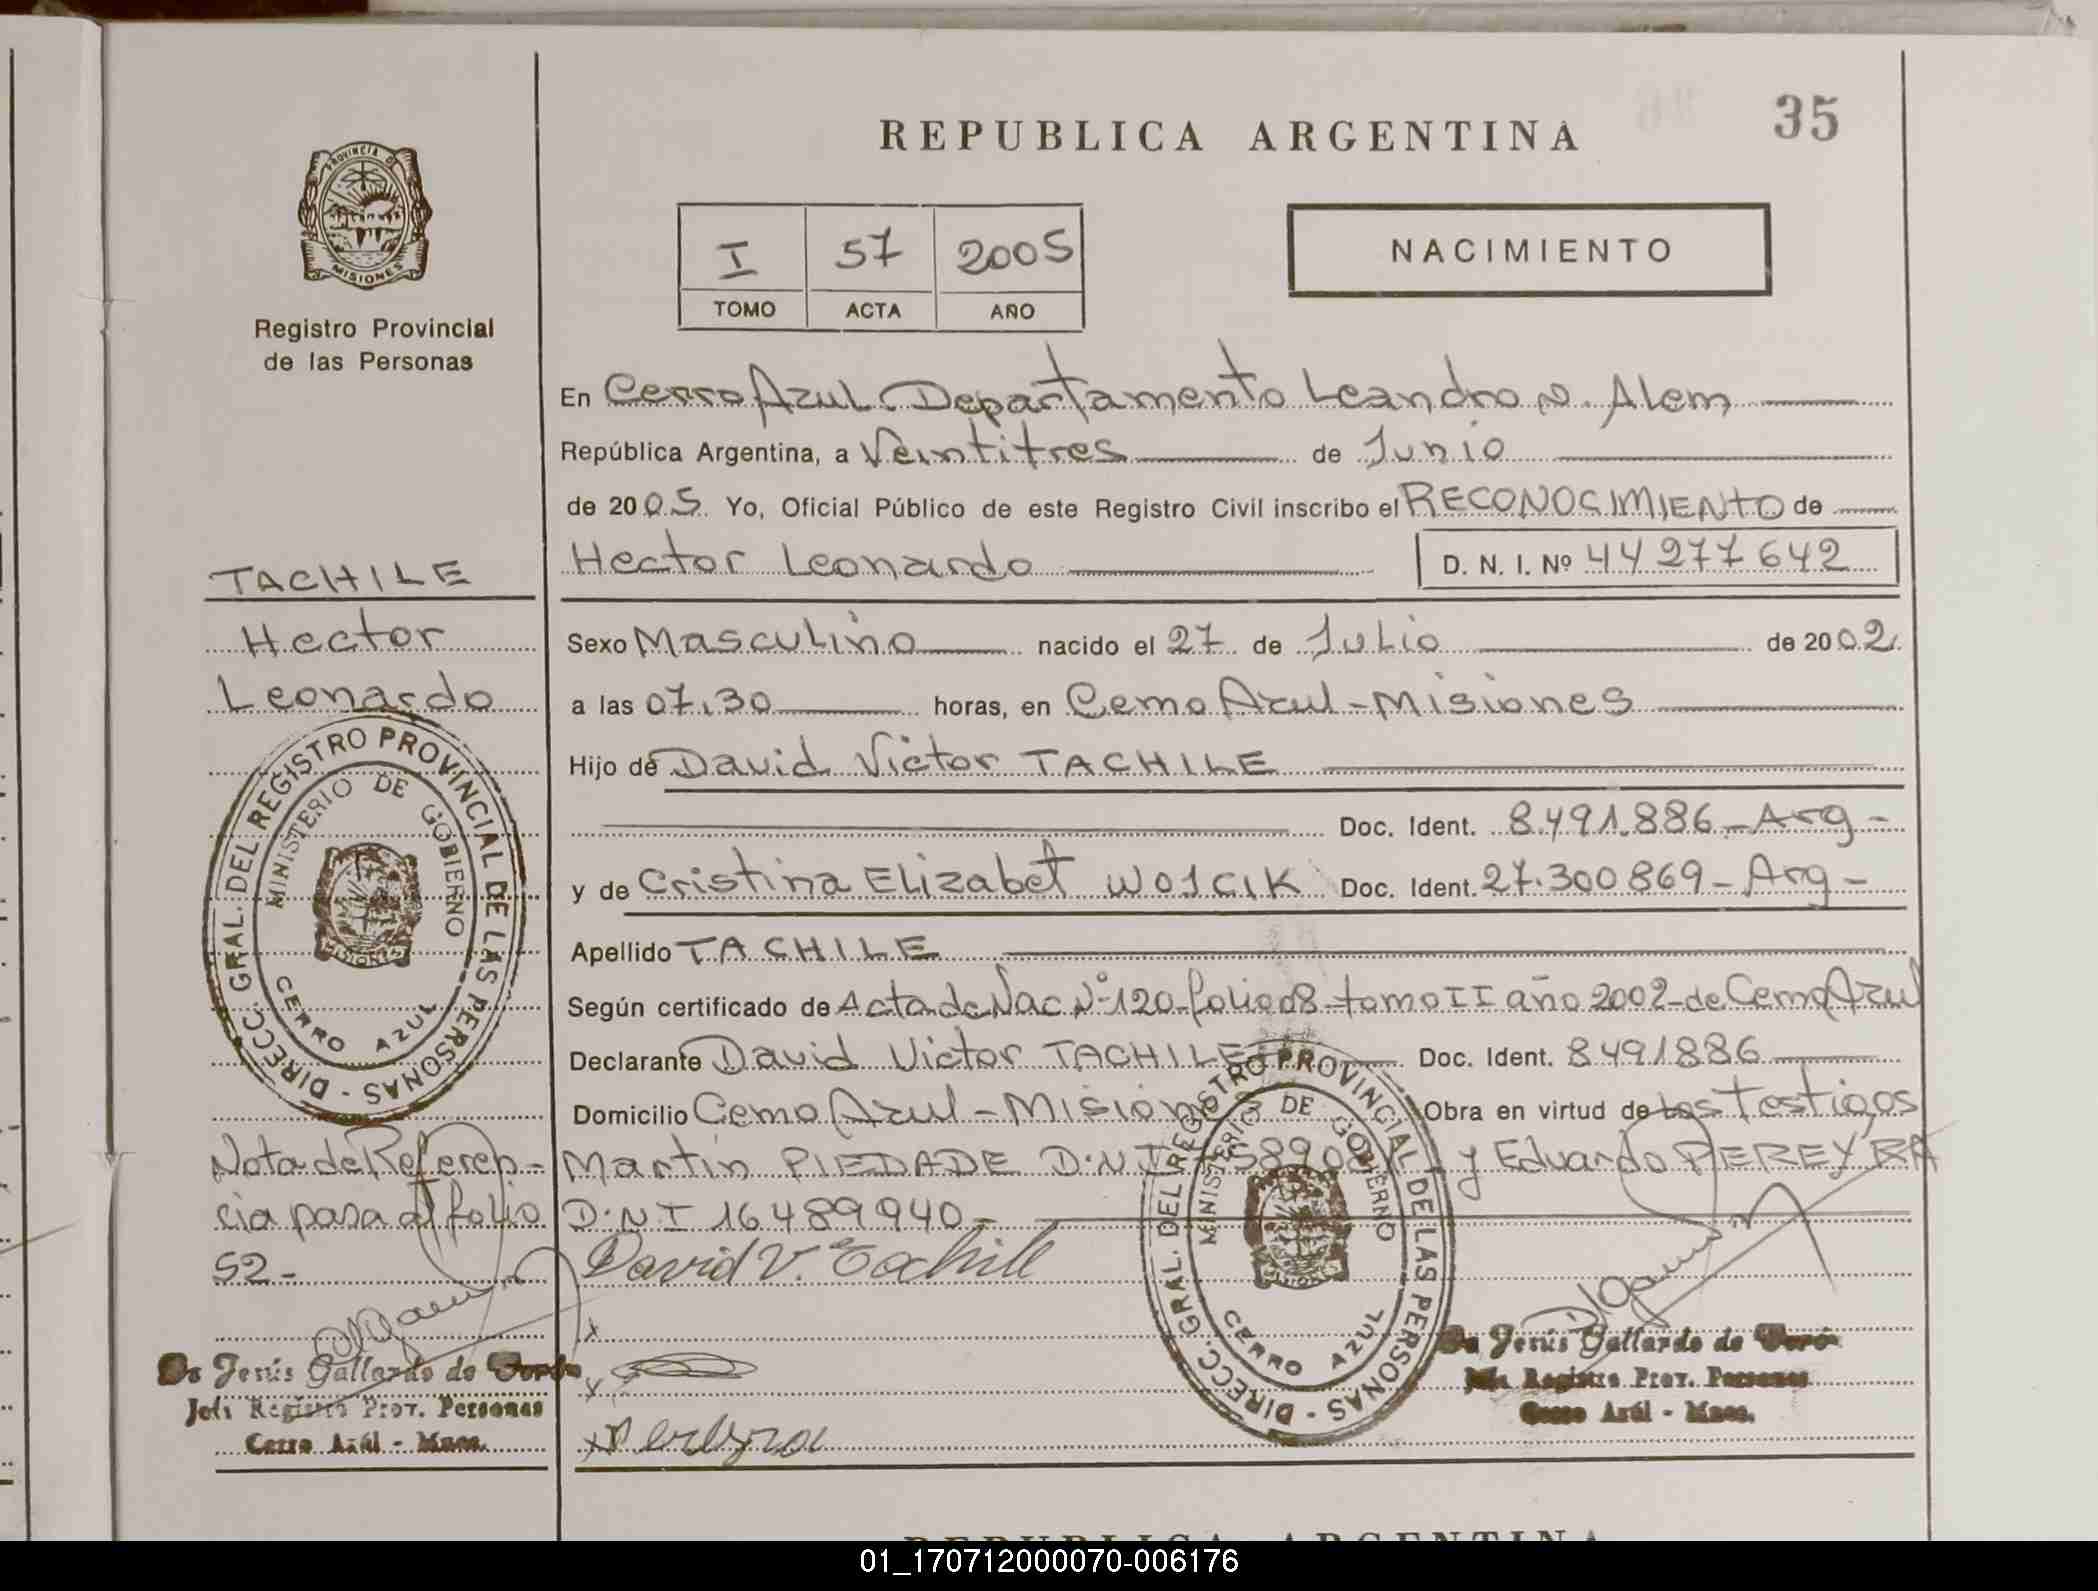 35
REPUBLICA ARGENTINA
PROVINCIA DE
MISIONES
Registro Provincial
de las Personas
I 57 2005
TOMO ACTA AÑO
NACIMIENTO
En Cerro Azul Departamento Leandro N. Alem
República Argentina, a Veintitres de Junio
de 2005 Yo, Oficial Público de este Registro Civil inscribo el RECONOCIMIENTO de
Hector Leonardo D. N. I. Nº 44277642
TACHILE
Hector
Leonardo
Sexo Masculino nacido el 27 de Julio de 2002
a las 07.30 horas, en Cerro Azul - Misiones
Hijo de David Victor TACHILE
Doc. Ident. 8.491.886 - Arg -
y de Cristina Elizabet WOJCIK Doc. Ident. 27.300869 - Arg -
Apellido TACHILE
Según certificado de Acta de Nac Nº 120 - folio 08 - tomo II año 2002 - de Cerro Azul
Declarante David Victor TACHILE Doc. Ident. 8491886
Domicilio Cerro Azul - Misiones Obra en virtud de Los Testigos
Martin PIEDADE D.N.I y Eduardo PEREYRA
D.N.I 16489940 -
David V. Tachile
DIRECC. GRAL. DEL REGISTRO PROVINCIAL DE LAS PERSONAS
MINISTERIO DE GOBIERNO
CERRO AZUL
MISIONES
Nota de Referen-
cia pasa al folio
52 -
Jesús Gallardo de Verón
Jefa Registro Prov. Personas
Cerro Azúl - Mnes.
x
x
x Pereyra
DIRECC. GRAL. DEL REGISTRO PROVINCIAL DE LAS PERSONAS
MINISTERIO DE GOBIERNO
CERRO AZUL
MISIONES
Jesús Gallardo de Verón
Jefa Registro Prov. Personas
Cerro Azúl - Mnes.
REPUBLICA ARGENTINA
01_170712000070-006176